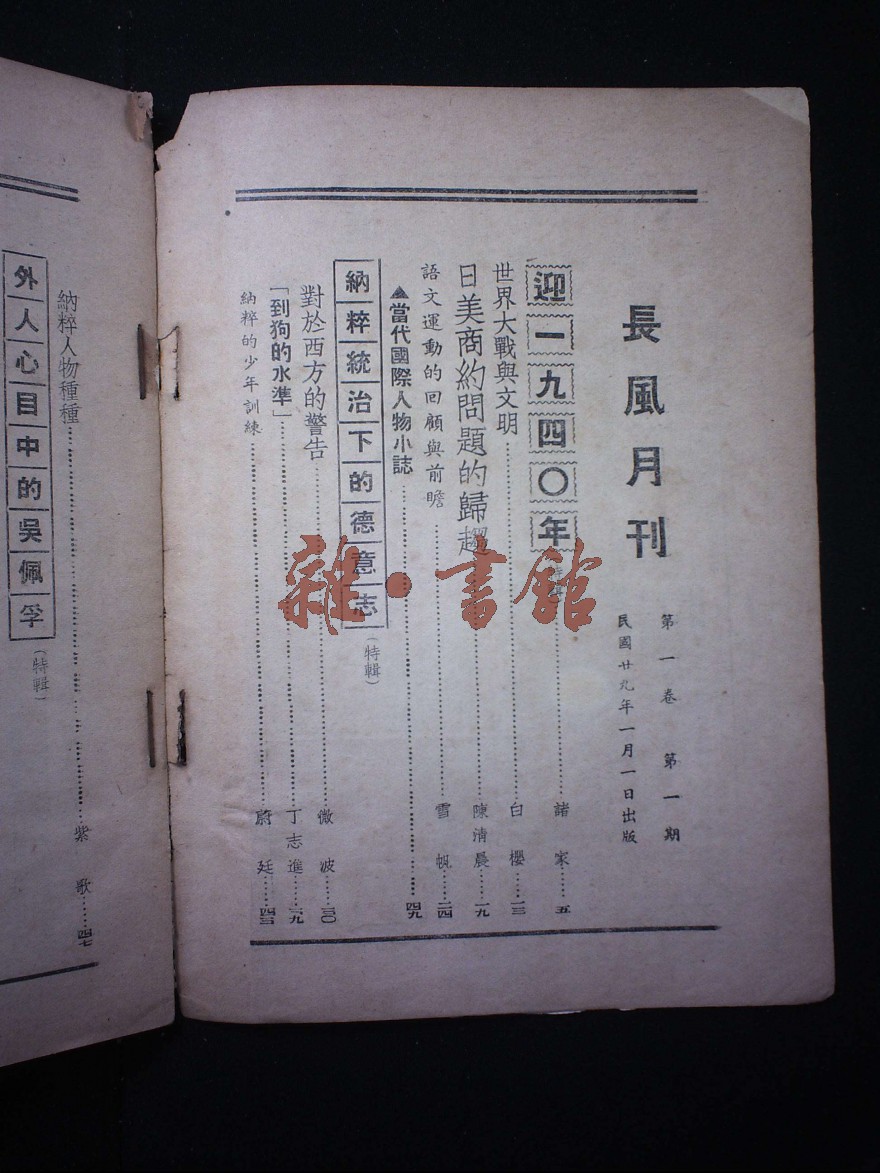 長風月刊
第一卷 第一期
民國廿九年一月一日出版
迎一九四〇年……諸家……五
世界大戰與文明……白櫻……一三
日美商約問題的歸趨……陳清晨……一九
語文運動的回顧與前瞻……雪帆……二四
▲當代國際人物小誌……四九
納粹統治下的德意志(特輯)
對於西方的警告……微波……三〇
「到狗的水準」……丁志進……三九
納粹的少年訓練……蔚廷……四三
納粹人物種種……紫歌……四七
外人心目中的吳佩孚(特輯)
雜·書館